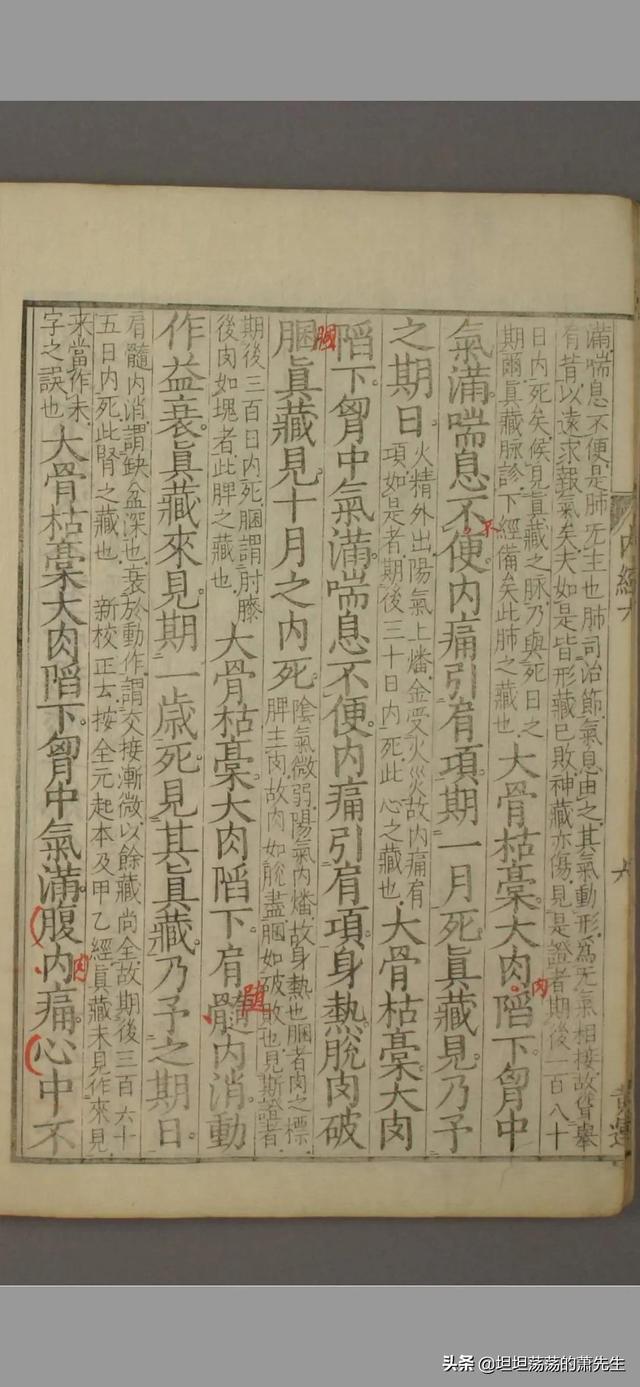 内經六
六
滿喘息不便是肺无主也肺司治節氣息由之其氣動形為无氣相接故聳舉
肩背以遠求報氣矣夫如是皆形藏已敗神藏亦傷見是證者期後一百八十
日内死矣候見真藏之脉乃與死日之
期爾真藏脉診下經備矣此肺之藏也
大骨枯槀大肉陷下胷中
肉
氣滿喘息不便内痛引肩項期一月死真藏見乃予
不
之期日
火精外出陽氣上燔金受火災故内痛肩
項如是者期後三十日内死此心之藏也
大骨枯槀大肉
陷下胷中氣滿喘息不便内痛引肩項身熱脫肉破
䐃
䐃真藏見十月之内死
陰氣微弱陽氣内燔故身熱也䐃者肉之標
脾主肉故肉如脫盡䐃如破敗也見斯證者
期後三百日内死䐃謂肘膝
後肉如塊者此脾之藏也
大骨枯槀大肉陷下肩髓内消動
髓
作益衰真藏來見期一歲死見其真藏乃予之期日
肩髓内消謂缺盆深也衰於動作謂交接漸微以餘藏尚全故期後三百六十
五日内死此腎之藏也 新校正云按全元起本及甲乙經真藏未見作來見
來當作未
字之誤也
大骨枯槀大肉陷下胷中氣滿腹内痛心中不
肉
头条 @坦坦荡荡的萧先生